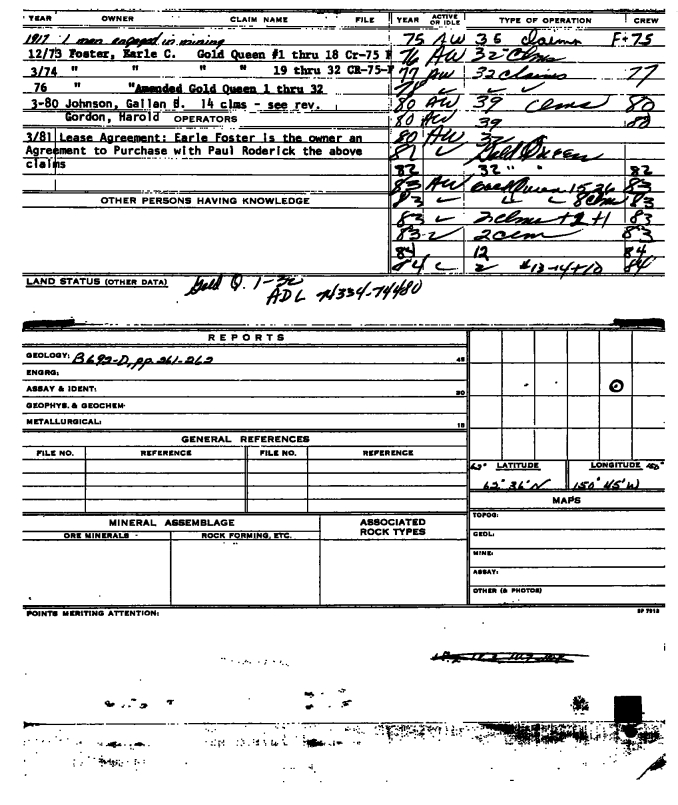 YEAR OWNER CLAIM NAME FILE YEAR ACTIVE OR IDLE TYPE OF OPERATION CREW
1917 1 man engaged in mining
12/73 Foster, Earle C. Gold Queen #1 thru 18 Cr-75
3/74 " " " " 19 thru 32 CR-75-
76 " "Amended Gold Queen 1 thru 32
3-80 Johnson, Gallan B. 14 clms - see rev.
Gordon, Harold OPERATORS
3/81 Lease Agreement: Earle Foster is the owner an
Agreement to Purchase with Paul Roderick the above
claims
OTHER PERSONS HAVING KNOWLEDGE
75 AW 36 claims F+75
76 AW 32 Clms
77 AW 32 claims 77
78 ✓ ✓ ✓
80 AW 39 clms 80
80 AW 39 80
80 AW
Gold Queen
82 32 " " 82
83 AW Gold Queen 15 26 83
83 ✓ ✓ ✓ 8 clms 83
83 ✓ 2 clms +2 +1 83
83 ✓ 2 clm 83
84 12 84
84 #13-14+10 84
LAND STATUS (OTHER DATA) Gold Q. 1-32
ADL 74334-74480
REPORTS
GEOLOGY: B 692-D, pp. 261-262 45
ENGRG:
ASSAY & IDENT: 30
GEOPHYS. & GEOCHEM:
METALLURGICAL: 15
GENERAL REFERENCES
FILE NO. REFERENCE FILE NO. REFERENCE
63° LATITUDE LONGITUDE 150°
62° 36' N 150° 45' W
MAPS
TOPOG:
GEOL:
MINE:
ASSAY:
OTHER (& PHOTOS)
MINERAL ASSEMBLAGE ASSOCIATED ROCK TYPES
ORE MINERALS ROCK FORMING, ETC.
POINTS MERITING ATTENTION: SP 7913